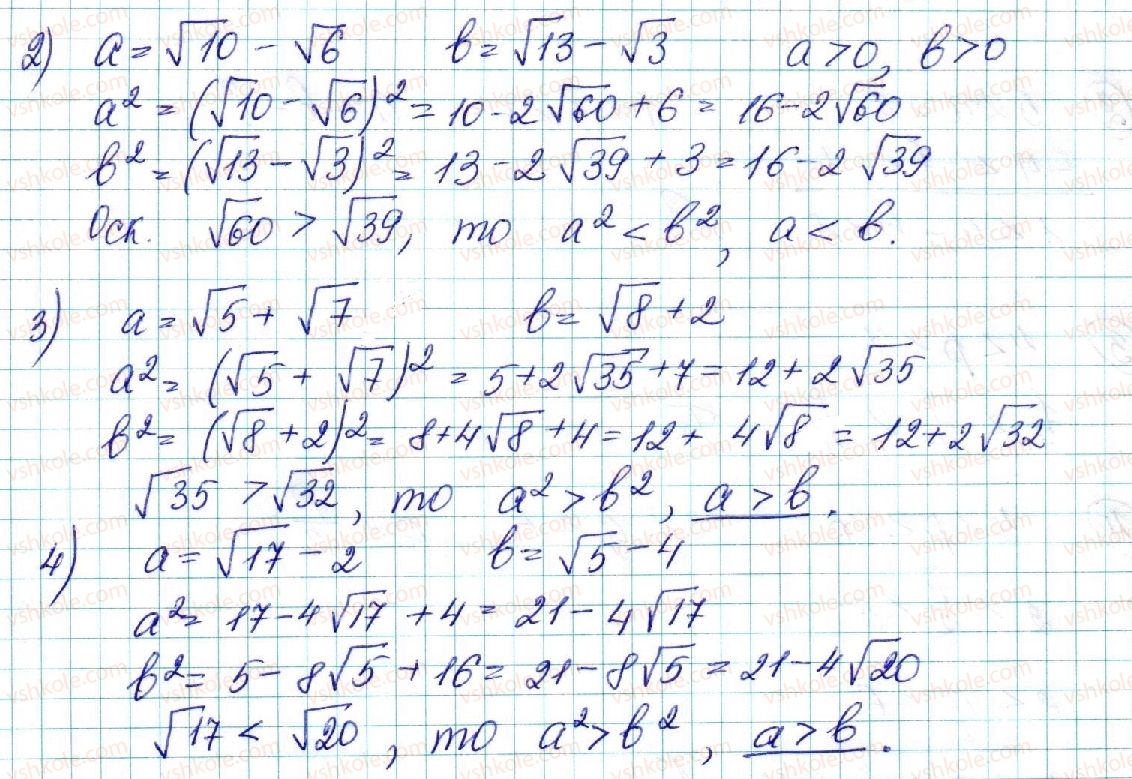 2) a = √10 - √6 b = √13 - √3 a > 0, b > 0
a² = (√10 - √6)² = 10 - 2√60 + 6 = 16 - 2√60
b² = (√13 - √3)² = 13 - 2√39 + 3 = 16 - 2√39
Оск. √60 > √39, то a² < b², a < b.
3) a = √5 + √7 b = √8 + 2
a² = (√5 + √7)² = 5 + 2√35 + 7 = 12 + 2√35
b² = (√8 + 2)² = 8 + 4√8 + 4 = 12 + 4√8 = 12 + 2√32
√35 > √32, то a² > b², a > b.
4) a = √17 - 2 b = √5 - 4
a² = 17 - 4√17 + 4 = 21 - 4√17
b² = 5 - 8√5 + 16 = 21 - 8√5 = 21 - 4√20
√17 < √20, то a² > b², a > b.